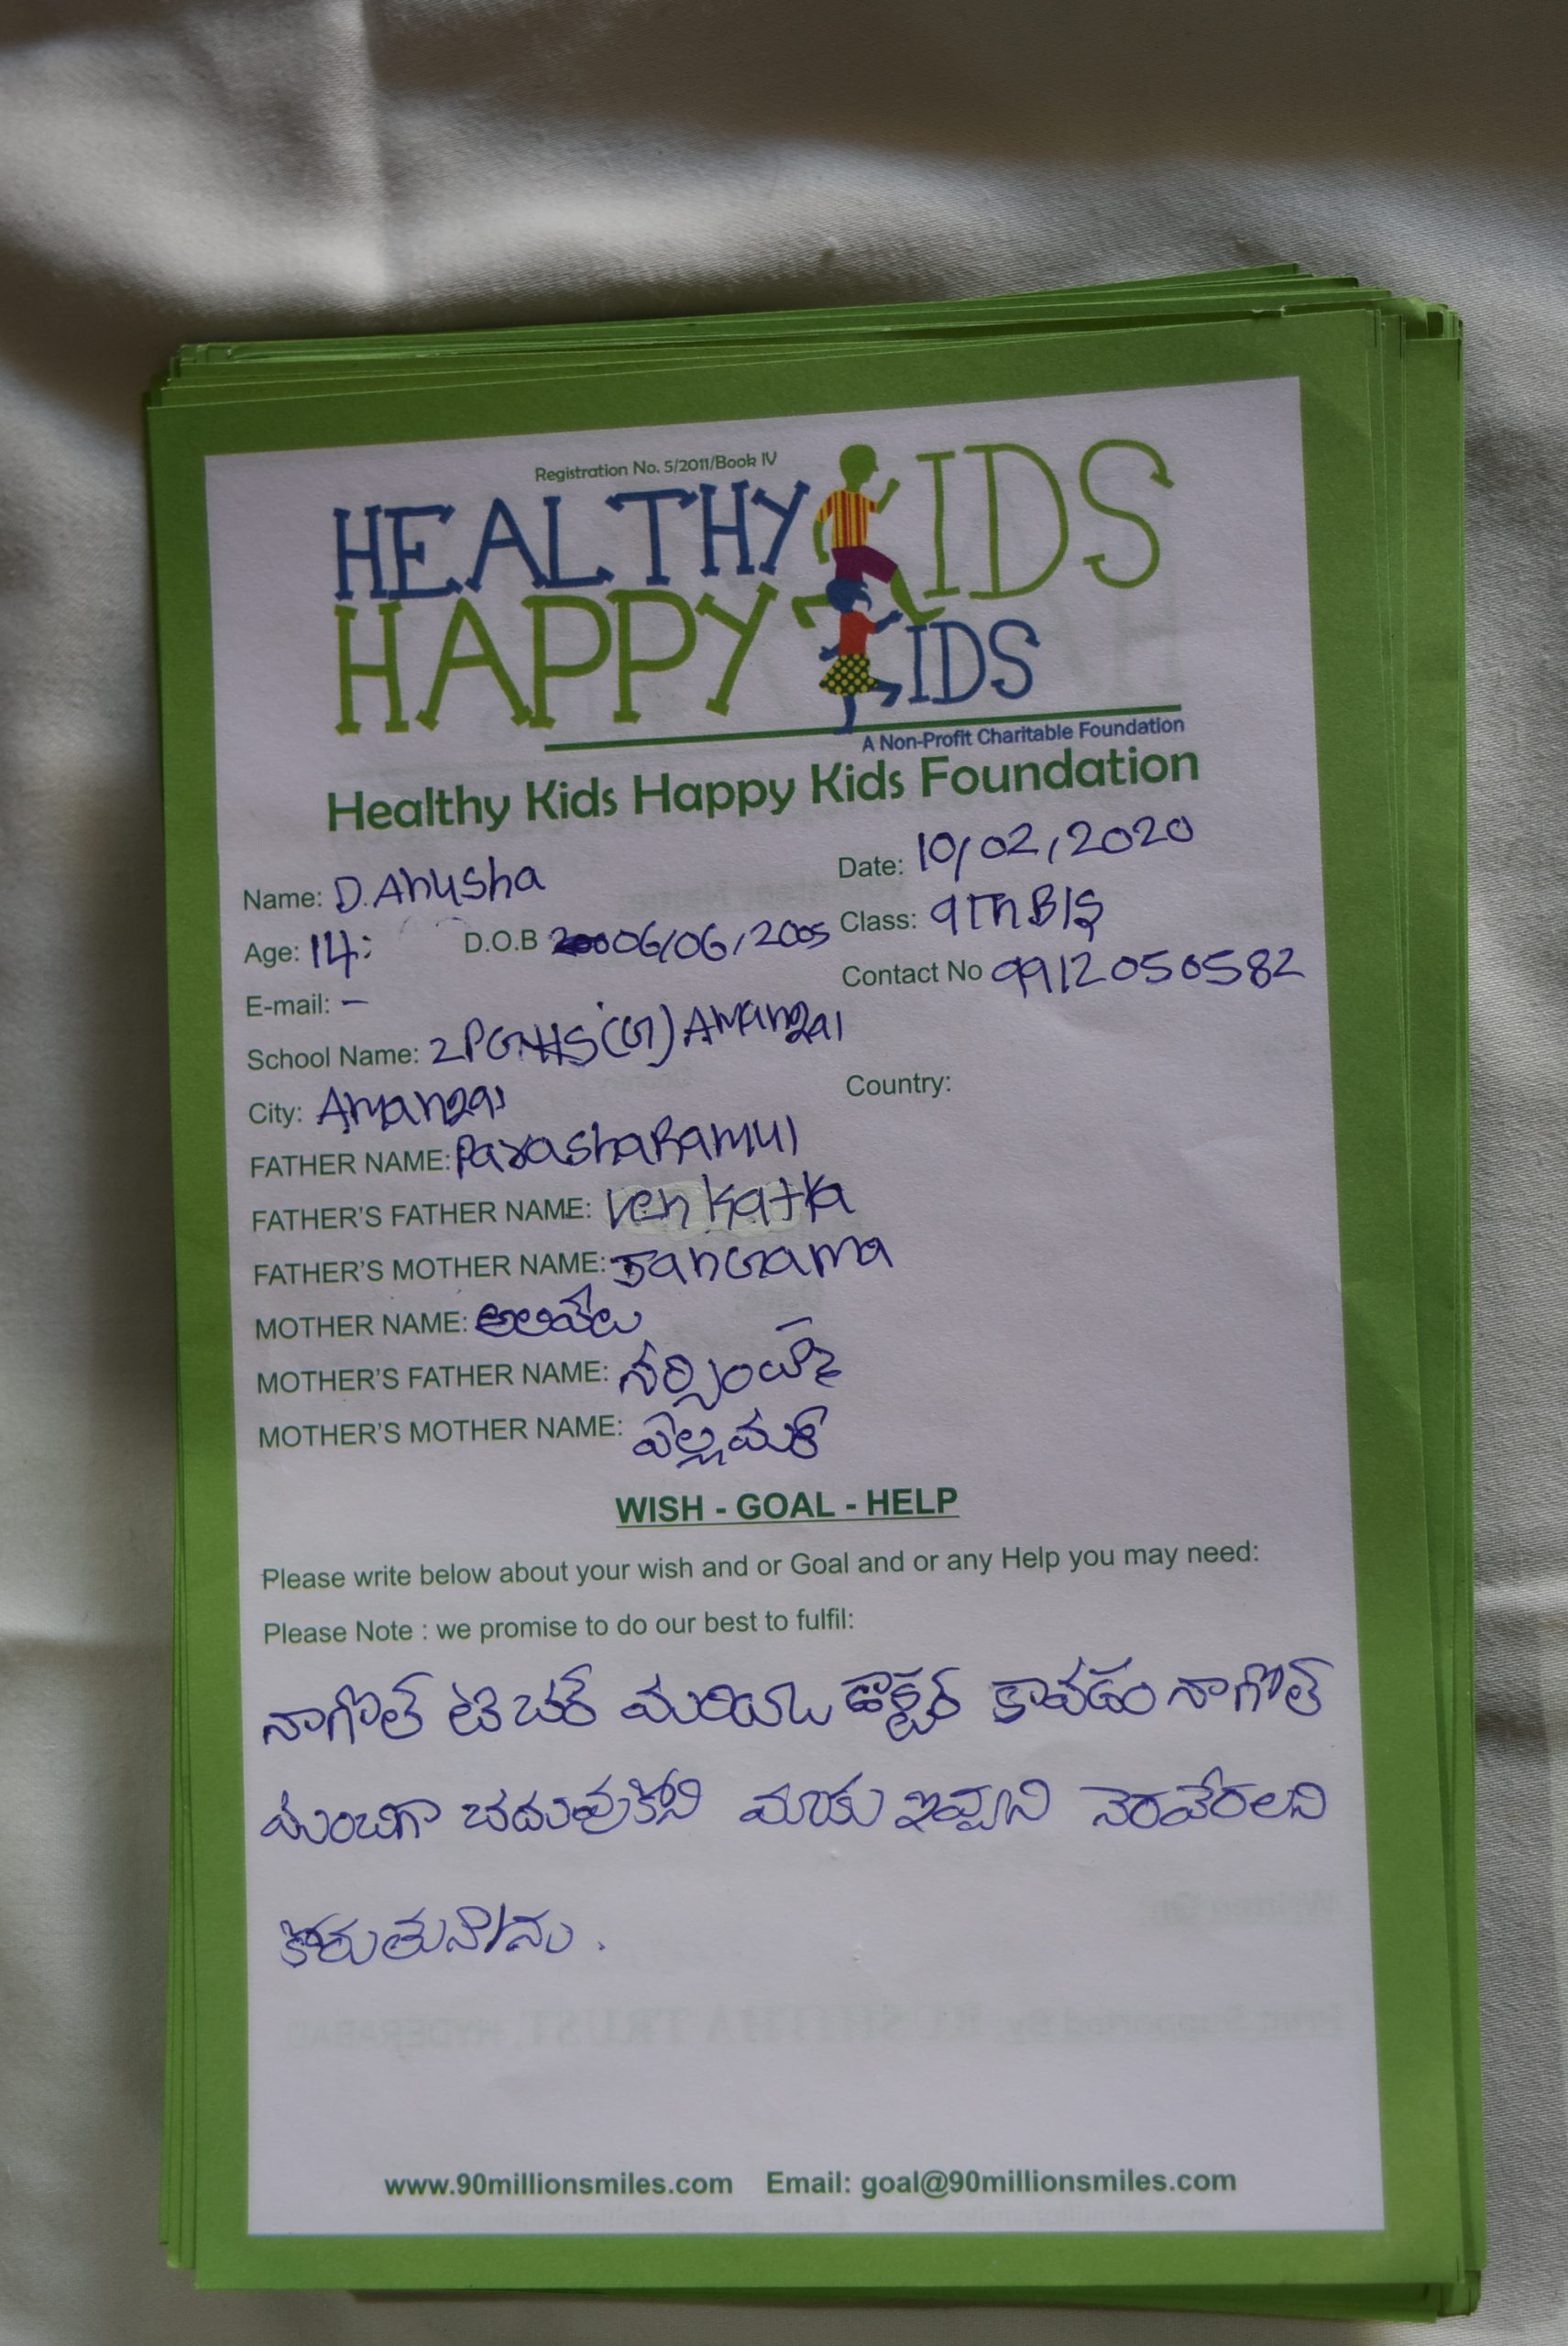 Registration No. 5/2011/Book IV
HEALTHY KIDS
HAPPY KIDS
A Non-Profit Charitable Foundation
Healthy Kids Happy Kids Foundation
Name: D.Anusha Date: 10/02/2020
Age: 14: D.O.B 06/06/2005 Class: 9Th B/S
E-mail: - Contact No 9912050582
School Name: ZPGHHS(G) Amangal
City: Amangal Country:
FATHER NAME: ParashaRamul
FATHER'S FATHER NAME: Venkatta
FATHER'S MOTHER NAME: JanGama
MOTHER NAME: అలివేలు
MOTHER'S FATHER NAME: నర్సింహ్మ
MOTHER'S MOTHER NAME: ఎల్లమ్మ
WISH - GOAL - HELP
Please write below about your wish and or Goal and or any Help you may need:
Please Note : we promise to do our best to fulfil:
నాగోల్ టీచర్ మరియు డాక్టర్ కావడం నాగోల్
మంచిగా చదువుకోని మాకు ఇవ్వని నెరవేరలని
కోరుతునాను.
www.90millionsmiles.com Email: goal@90millionsmiles.com